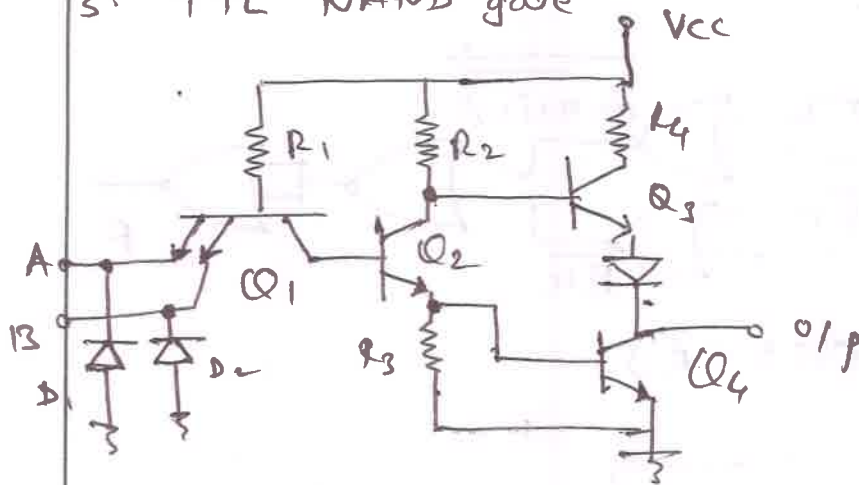 3. TTL NAND gate
VCC
R1
R2
R4
Q3
A
Q1
Q2
B
D1
D2
R3
Q4
O/P